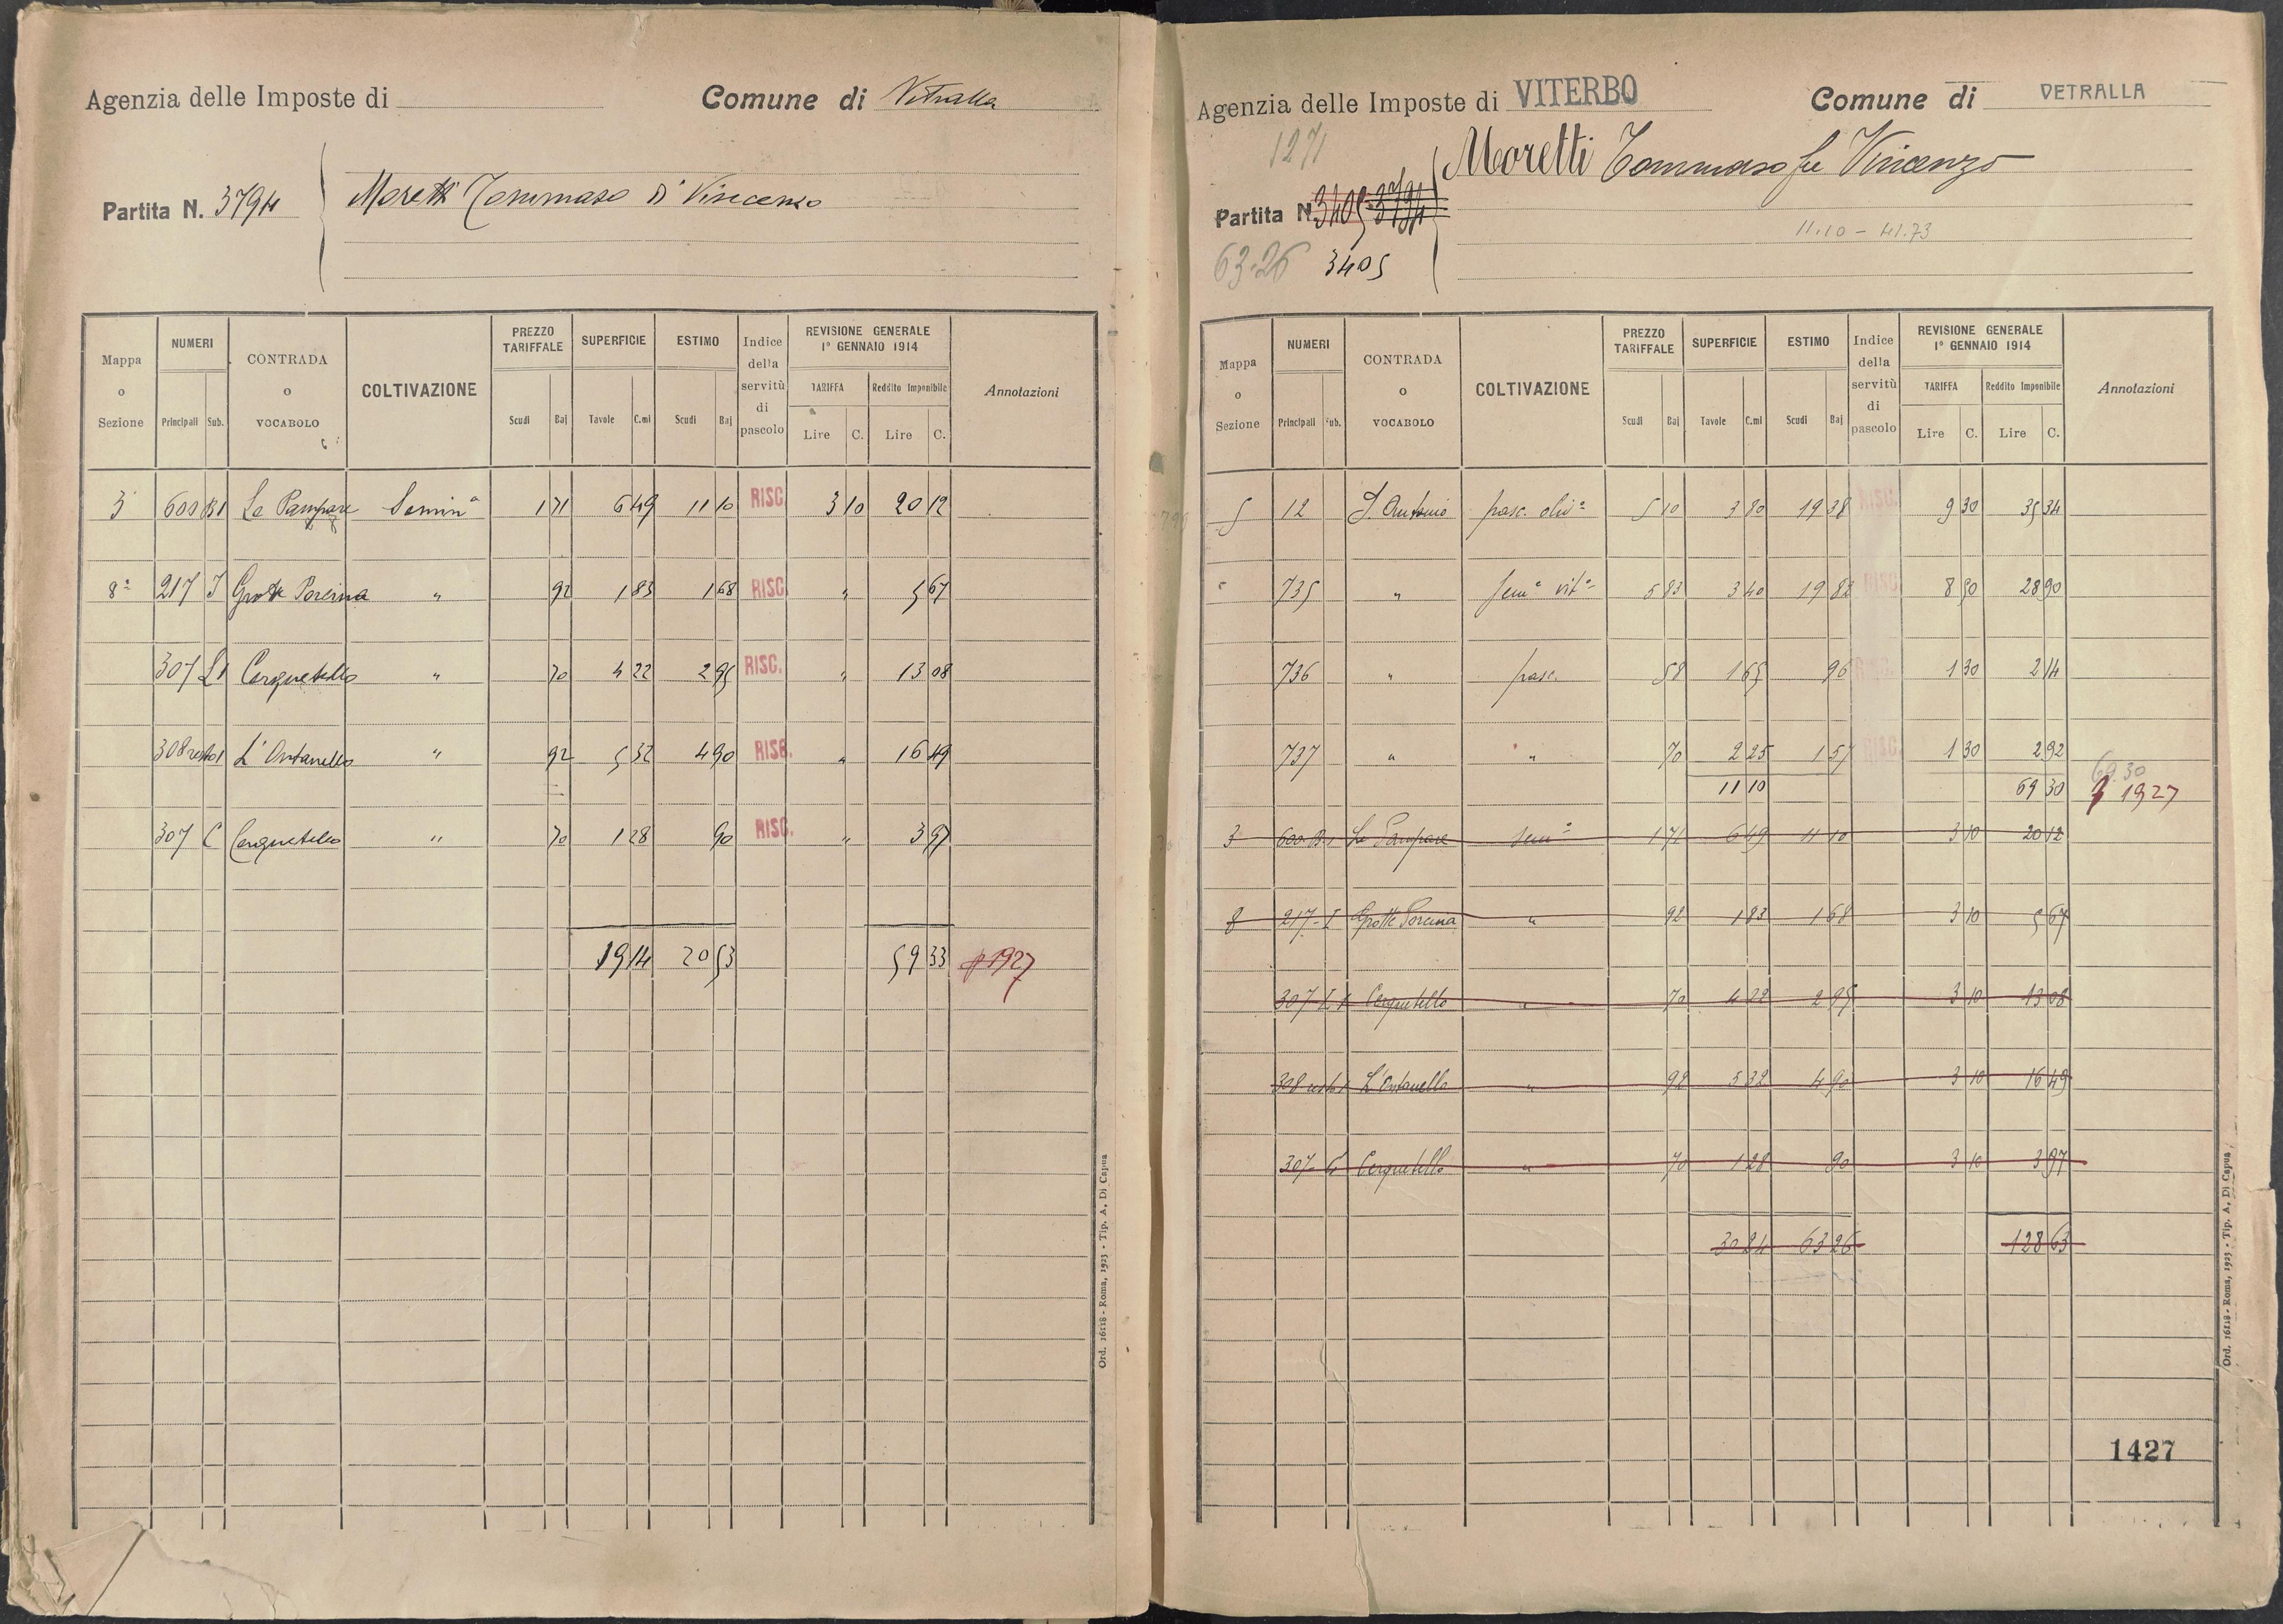 Agenzia delle Imposte di
Comune di Vetralla
Partita N. 3794
Moretti Tommaso di Vincenzo
Mappa o Sezione
NUMERI
Principali Sub.
CONTRADA o VOCABOLO
COLTIVAZIONE
PREZZO TARIFFALE
Scudi Baj
SUPERFICIE
Tavole C.mi
ESTIMO
Scudi Baj
Indice della servitù di pascolo
REVISIONE GENERALE 1° GENNAIO 1914
TARIFFA
Lire C.
Reddito Imponibile
Lire C.
Annotazioni
3 600 B1 Le Pampare Semin° 1 71 6 49 11 10 RISC 3 10 20 12
8ª 217 I Grotte Porcina " 92 1 83 1 68 RISC " 5 67
307 L1 Cerquetello " 70 4 22 2 95 RISC. " 13 08
308 resto 1 L'Ontanello " 92 5 32 4 90 RISC. " 16 49
307 C Cerquetello " 70 1 28 90 RISC. " 3 97
19 14 20 53 59 33 1927
Ord. 16118 - Roma, 1923 - Tip. A. Di Capua
Agenzia delle Imposte di VITERBO
Comune di VETRALLA
1271
Partita N. 3405 3794
Moretti Tommaso fu Vincenzo
11.10 - 41.73
63-26 3405
Mappa o Sezione
NUMERI
Principali Sub.
CONTRADA o VOCABOLO
COLTIVAZIONE
PREZZO TARIFFALE
Scudi Baj
SUPERFICIE
Tavole C.mi
ESTIMO
Scudi Baj
Indice della servitù di pascolo
REVISIONE GENERALE 1° GENNAIO 1914
TARIFFA
Lire C.
Reddito Imponibile
Lire C.
Annotazioni
5 12 S. Antonio pasc. oliv° 5 10 3 80 19 38 RISC. 9 30 35 34
735 " sem° vit° 5 83 3 40 19 82 RISC 8 50 28 90
736 " pasc. 58 1 65 96 RISC. 1 30 2 14
737 " " 70 2 25 1 57 RISC. 1 30 2 92
69.30
11 10 69 30 1927
3 600 B1 Le Pampare sem° 1 71 6 49 11 10 3 10 20 12
8 217 I Grotte Porcina " 92 1 83 1 68 3 10 5 67
307 L1 Cerquetello " 70 4 22 2 95 3 10 13 08
308 resto 1 L'Ontanello " 92 5 32 4 90 3 10 16 49
307 C Cerquetello " 70 1 28 90 3 10 3 97
30 24 63 26 128 63
1427
Ord. 16118 - Roma, 1923 - Tip. A. Di Capua